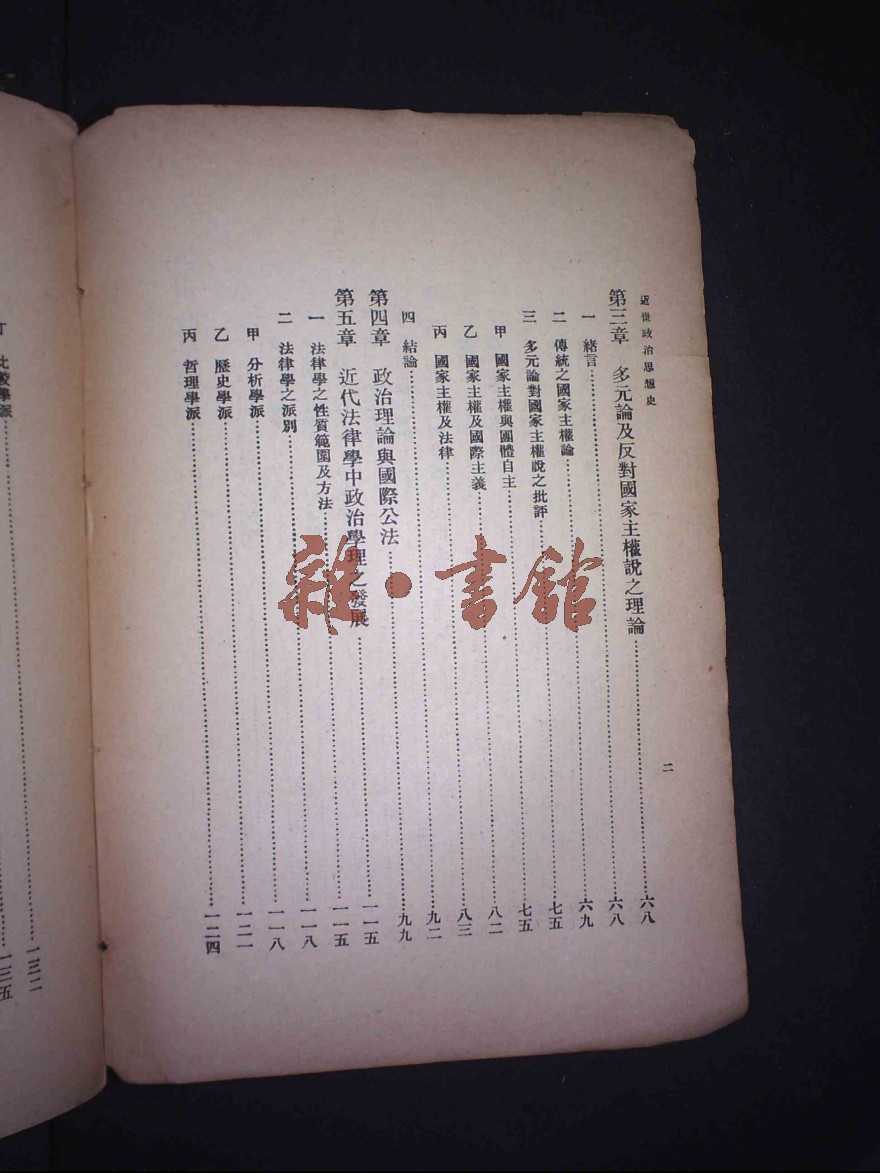 近世政治思想史
二
第三章 多元論及反對國家主權說之理論……六八
一 緒言……六八
二 傳統之國家主權論……六九
三 多元論對國家主權說之批評……七五
甲 國家主權與團體自主……七五
乙 國家主權及國際主義……八二
丙 國家主權及法律……八三
四 結論……九二
第四章 政治理論與國際公法……九九
第五章 近代法律學中政治學理之發展……一一五
一 法律學之性質範圍及方法……一一五
二 法律學之派別……一一八
甲 分析學派……一一八
乙 歷史學派……一二一
丙 哲理學派……一二四
丁 比較學派……一三二
一三五
雜·書館